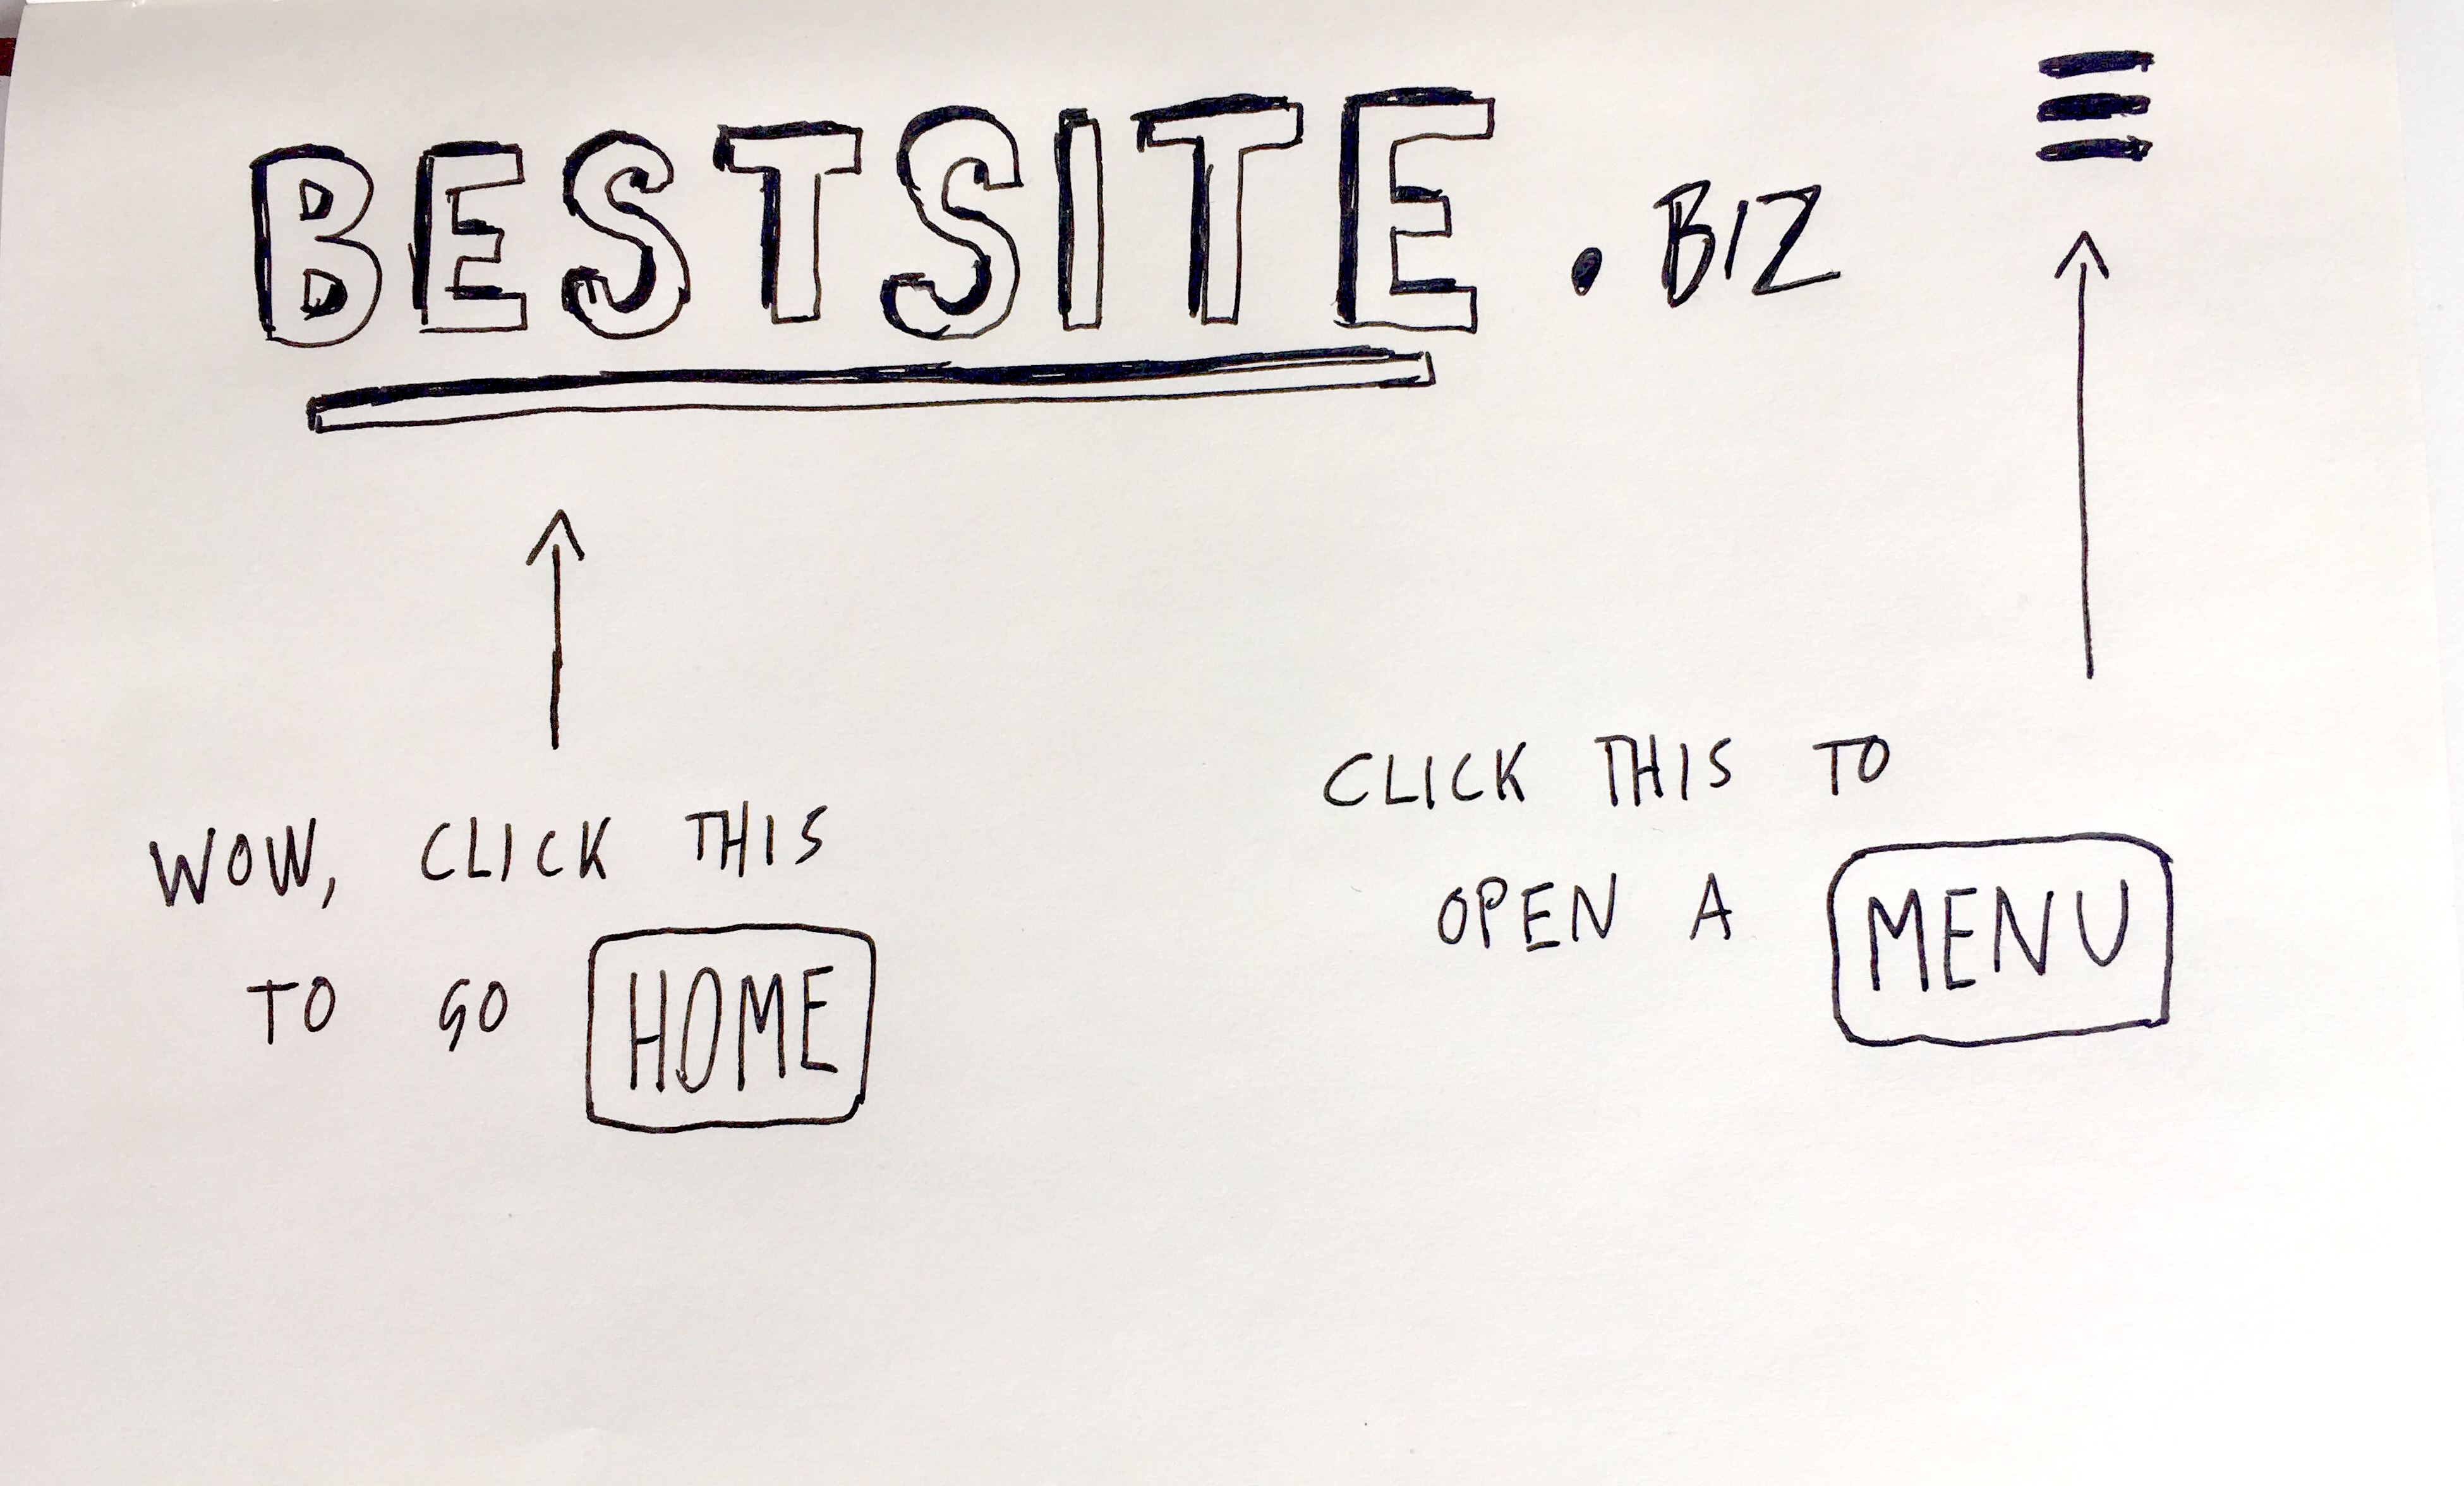 BESTSITE .BIZ
WOW, CLICK THIS
TO GO HOME
CLICK THIS TO
OPEN A MENU